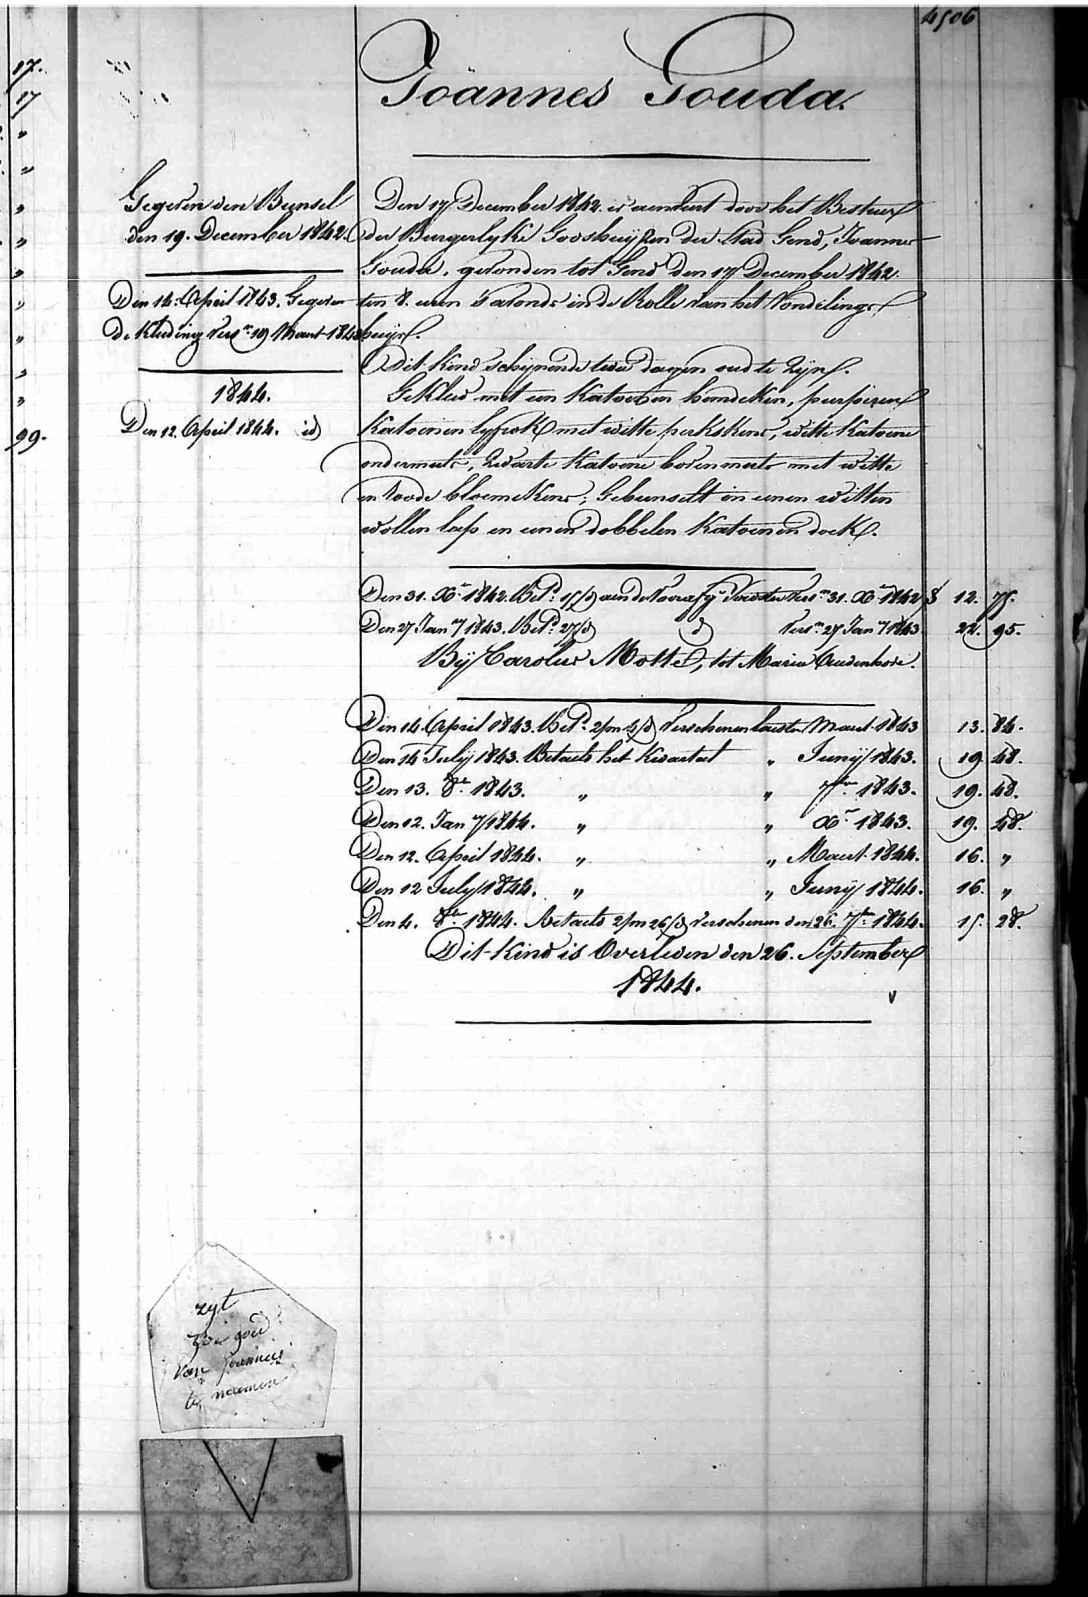 4506
17.
17
"
"
"
"
"
"
"
"
99.
Joännes Gouda.
Gegeven den Bunsel
den 19. December 1842.
Den 14. April 1843. Gegeven
de Kleeding Vers.n 19 Maart 1843
1844.
Den 12. April 1844. id
Den 17 December 1842 is aenveert door het Bestuur
der Burgerlyke Godshuijzen der Stad Gend, Joannes
Gouda, gevonden tot Gend den 17 December 1842
ten 8. uren s'avonds in de Rolle van het Vondelings
huijs.
dit kind schijnende twee dagen oud te Zijn.
Gekleed met een Katoenen hemdeken, purperen
Katoenen lyfrok met witte perkskens, witte Katoene
ondermuts, Zwarte Katoene bovenmuts met witte
en roode bloemekens; Gebunselt in eenen witten
wollen laps en eenen dobbelen Katoenen doek.
Den 31. Xr. 1842. Betd. 15/d aen de Voorsz. Vers.n 31. Xr. 1842 12. 75.
Den 27 Jan.y 1843. Betd. 27/d d Vers.n 27 Jan.y 1843 22. 95.
Bij Carolus Motte, tot Maria Oudenhove.
Den 14. April 1843. Betd. 2/m 4/d Verschenen laesten Maart 1843 13. 84.
Den 14 July 1843. Betaelt het Kwartael " Junij 1843. 19 48.
Den 13. 8re. 1843. " " 7re. 1843. 19. 48.
Den 12. Jan.y 1844. " " Xr. 1843. 19. 48.
Den 12. April 1844. " " Maart 1844. 16. "
Den 12 July 1844. " " Junij 1844. 16. "
Den 4. 8re. 1844. Betaelt 2/m 26/d Verschenen den 26. 7re. 1844. 15. 28.
Dit Kind is Overleden den 26. September
1844.
zyt
zoo goed
van joannes
te noemen